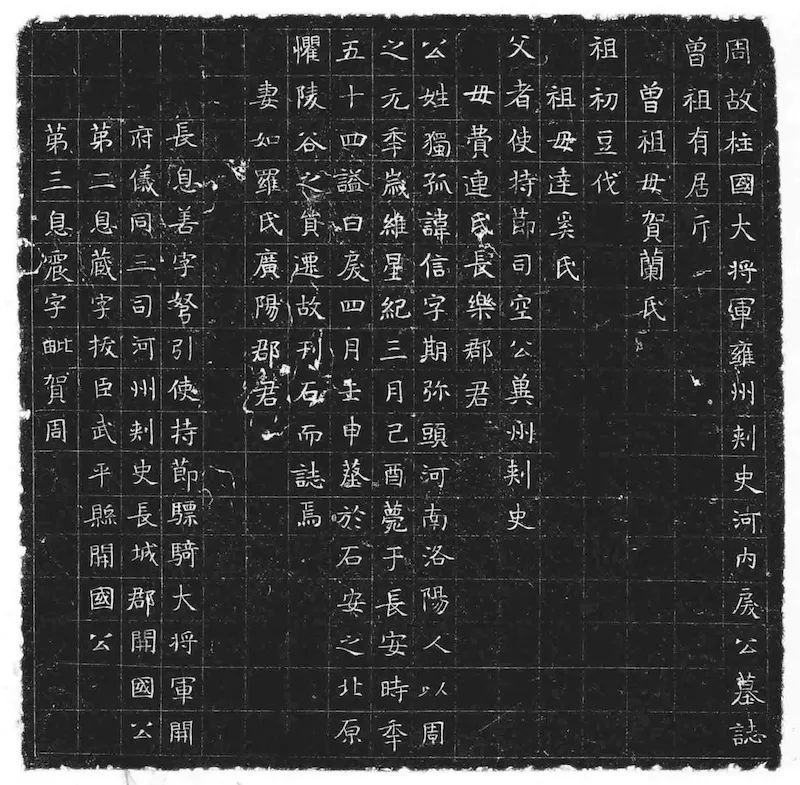 周故柱國大将軍雍州刾史河內戾公墓誌
曾祖有居斤
曾祖母賀蘭氏
祖初豆伐
祖母達奚氏
父者使持節司空公兾州刾史
母費連氏長樂郡君
公姓獨孤諱信字期弥頭河南洛陽人以周
之元秊歲維星紀三月己酉薨于長安時秊
五十四謚曰戾四月壬申塟於石安之北原
懼陵谷之貿遷故刊石而誌焉
妻如羅氏廣陽郡君
長息善字弩引使持節驃騎大将軍開
府儀同三司河州刾史長城郡開國公
第二息藏字拔臣武平縣開國公
第三息震字毗賀周